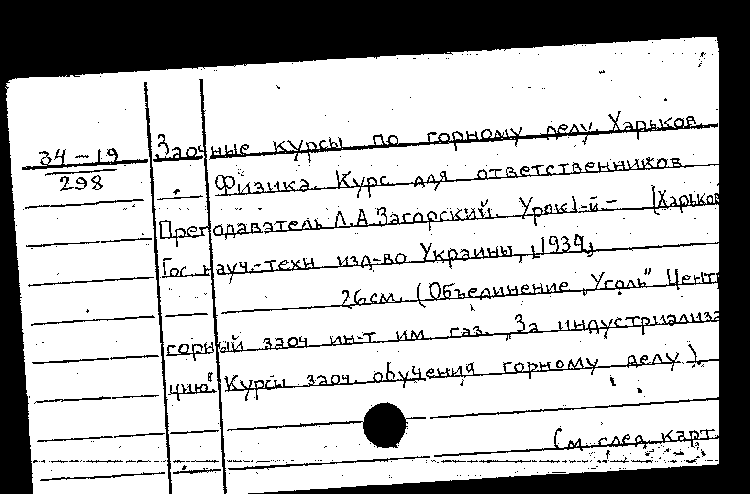 34-19
298
Заочные курсы по горному делу. Харьков.
Физика. Курс для ответственников.
Преподаватель Л.А.Загорский. Урок 1-й.- [Харьков
Гос. науч.-техн изд-во Украины, 1934,
26см. (Объединение „Уголь" Центр
горный заоч ин-т им газ. „За индустриализа
цию". Курсы заоч. обучения горному делу).
См. след. карт.